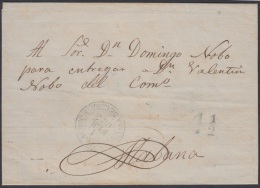 Al Sor. Dn Domingo Nobo
para entregar a Dn Valentin
Nobo del Como.
1 1/2
Habana